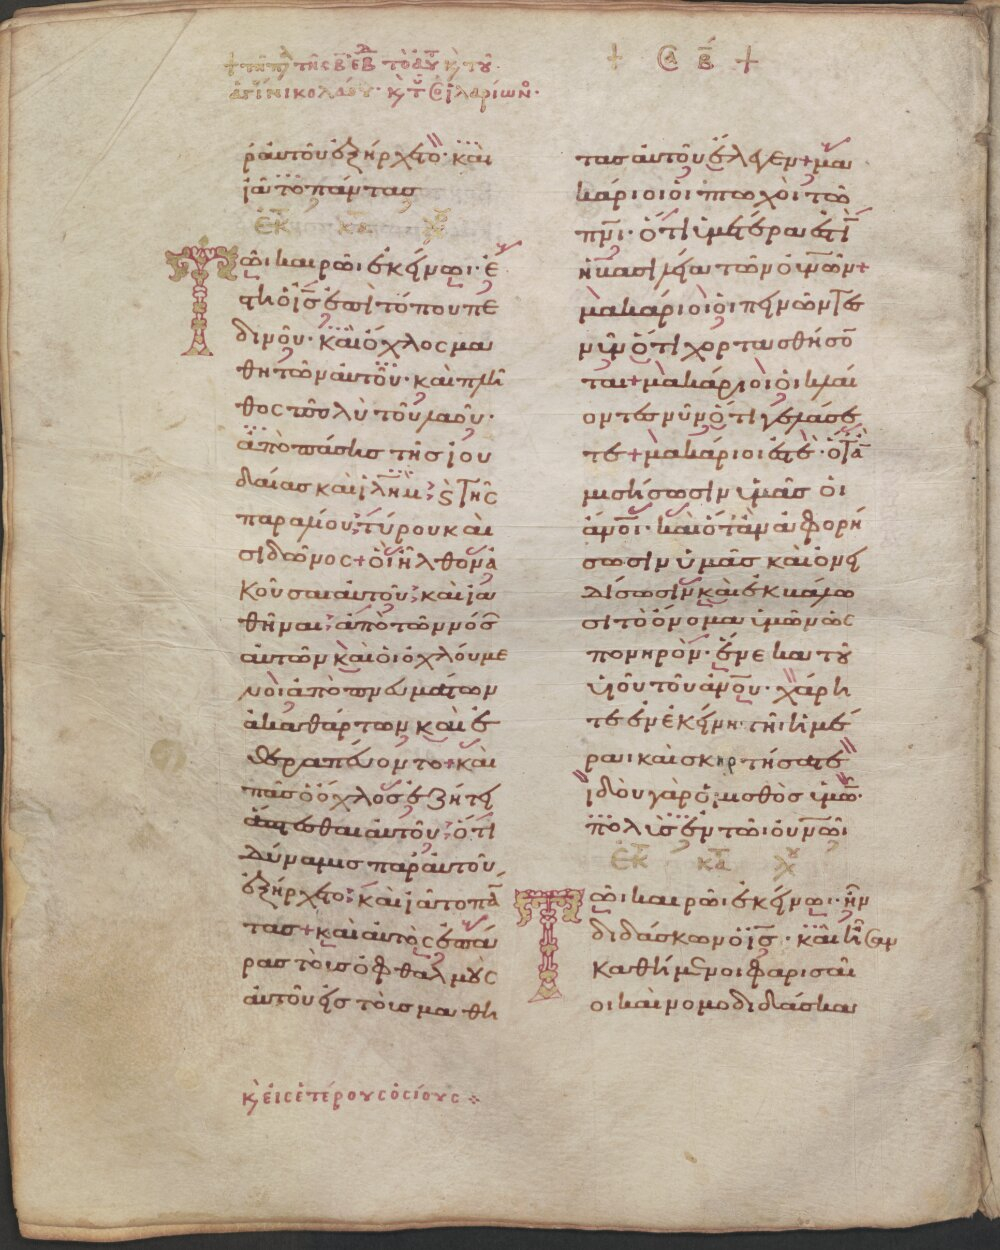 ρ αὐτοῦ ἐξήρχετο· καὶ
ἰᾶτο πάντας
ἐκ κατὰ
Τῶι καιρῶι ἐκείνωι· ἔ
στη ὁ ἰς ἐπὶ τόπου πε
δινοῦ· καὶ ὄχλος μα
θητῶν αὐτοῦ· καὶ πλῆ
θος πολὺ τοῦ λαοῦ·
ἀπὸ πάσης τῆς ἰου
δαίας καὶ ἰλημ· καὶ τῆς
παραλίου τύρου καὶ
σιδῶνος + οἳ ἦλθον ἀ
κοῦσαι αὐτοῦ· καὶ ἰα
θῆναι· ἀπὸ τῶν νόσ
αὐτῶν καὶ οἱ ὀχλούμε
νοι ἀπὸ πνευμάτων
ἀκαθάρτων καὶ ἐ
θεραπεύοντο + καὶ
πᾶς ὁ ὄχλος ἐζήτει
ἅπτεσθαι αὐτοῦ· ὅτι
δύναμις παρ αὐτοῦ
ἐξήρχετο· καὶ ἰᾶτο πά
τας + καὶ αὐτὸς ἐπά
ρας τοὺς ὀφθαλμοὺς
αὐτοῦ εἰς τοὺς μαθη
κ εἰς ἑτέρους ὁσίους
τὰς αὐτοῦ ἔλεγεν + μα
κάριοι οἱ πτωχοὶ τῶ
πνι· ὅτι ὑμετέρα ἐστὶ
ἡ βασιλεία τῶν οὐνῶν +
μακάριοι οἱ πεινῶντες
νῦν ὅτι χορτασθήσο
ται + μακάριοι οἱ κλαί
οντες νῦν ὅτι γελάσε
τε + μακάριοί ἐστε· ὅτα
μισήσωσιν ὑμᾶς οἱ
ἄνοι· καὶ ὅταν ἀφορί
σωσιν ὑμᾶς καὶ ὀνει
δίσωσιν καὶ ἐκβάλω
σι τὸ ὄνομα ὑμῶν ὡς
πονηρὸν· ἕνεκα τοῦ
υἱοῦ τοῦ ἀνου· χάρη
τε ἐν ἐκείνη τῆι ἡμέ
ραι καὶ σκηρτήσατε
ἰδοὺ γὰρ ὁ μισθὸς ὑμῶ·
πολὺς ἐν τῶι οὐνῶι
ἐκ κατὰ
Τῶι καιρῶι ἐκείνωι· ἦν
διδάσκων ὁ ἰς· καὶ ἦσαν
καθήμενοι φαρισαῖ
οι καὶ νομοδιδάσκα